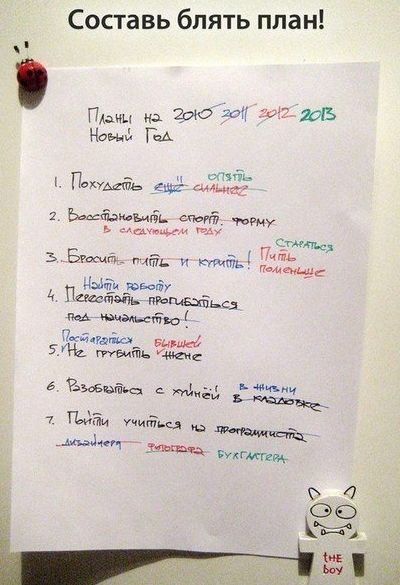 Составь блять план!
Планы на 2010 2011 2012 2013
Новый Год
опять
1. Похудеть ещё сильнее
2. Восстановить спорт. форму
в следующем году
Стараться
3. Бросить пить и курить! Пить
поменьше
Найти работу
4. Перестать прогибаться
под начальство!
Постараться бывшей
5. Не грубить жене
6. Разобраться с хуйнёй в жизни
в кладовке
7. Пойти учиться на программиста
дизайнера фотографа бухгалтера
THE
BOY